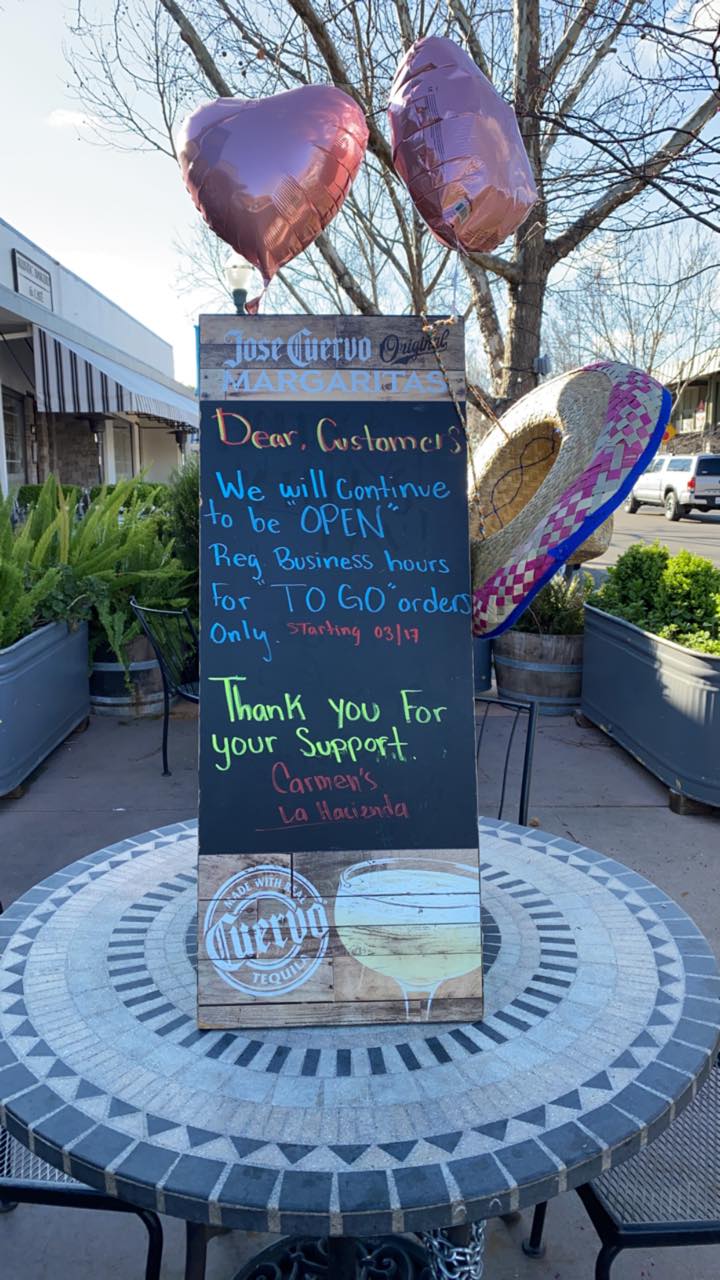 Jose Cuervo Original
MARGARITAS
Dear, Customers
We will Continue
to be "OPEN"
Reg. Business hours
For "TO GO" orders
Only. Starting 03/17
Thank you For
your Support.
Carmen's
La Hacienda
MADE WITH REAL
Cuervo
TEQUILA